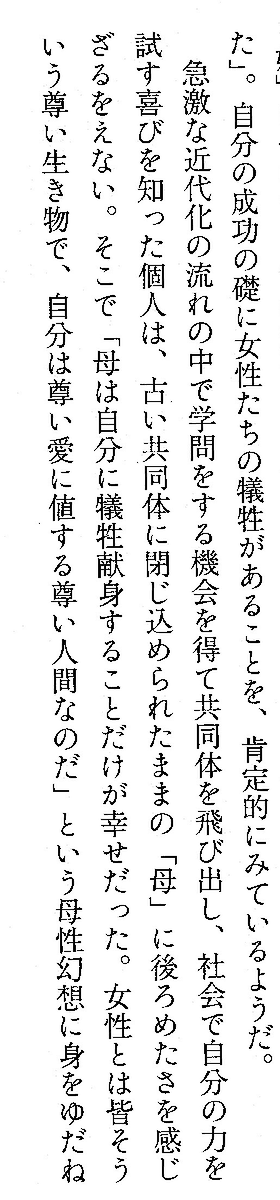 た」。自分の成功の礎に女性たちの犠牲があることを、肯定的にみているようだ。
急激な近代化の流れの中で学問をする機会を得て共同体を飛び出し、社会で自分の力を
試す喜びを知った個人は、古い共同体に閉じ込められたままの「母」に後ろめたさを感じ
ざるをえない。そこで「母は自分に犠牲献身することだけが幸せだった。女性とは皆そう
いう尊い生き物で、自分は尊い愛に値する尊い人間なのだ」という母性幻想に身をゆだね